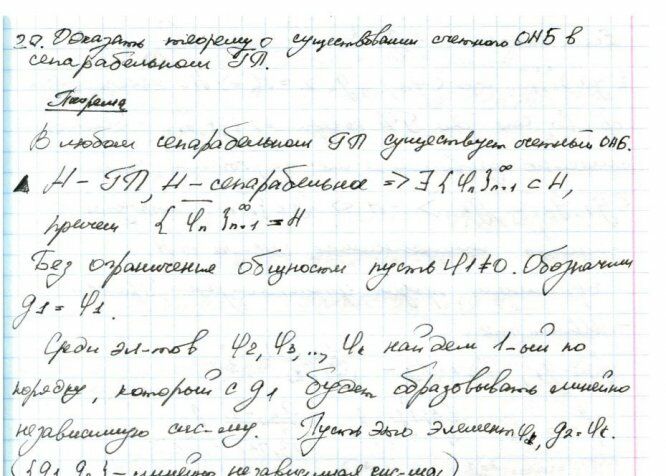 27. Доказать теорему о существовании счетного ОНБ в
сепарабельном ГП.
Теорема
В любом сепарабельном ГП существует счетный ОНБ.
▲ H - ГП, H - сепарабельное => ∃ {φn}n=1^∞ ⊂ H,
причем {φn}n=1^∞ = H
Без ограничения общности пусть φ1≠0. Обозначим
g1 = φ1.
Среди эл-тов φ2, φ3, .., φk найдем 1-ый по
порядку, который с g1 будет образовывать линейно
независимую сис-му. Пусть это элемент φk, g2=φk.
({g1, g2} - линейно независимая сис-ма)